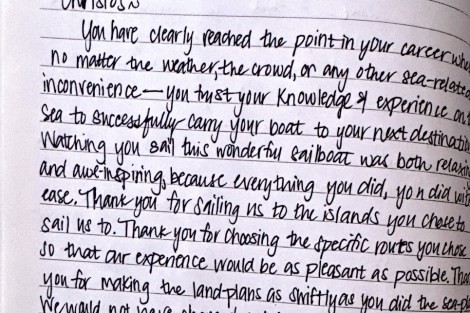 You have clearly reached the point in your career whe
no matter the weather, the crowd, or any other sea-related
inconvenience—you trust your knowledge & experience on
sea to successfully carry your boat to your next destinatio
Watching you sail this wonderful sailboat was both relaxi
and awe-inspiring, because everything you did, you did wit
ease. Thank you for sailing us to the islands you chose to
sail us to. Thank you for choosing the specific routes you chose
so that our experience would be as pleasant as possible. Than
you for making the land-plans as swiftly as you did the sea-pla
We would not have